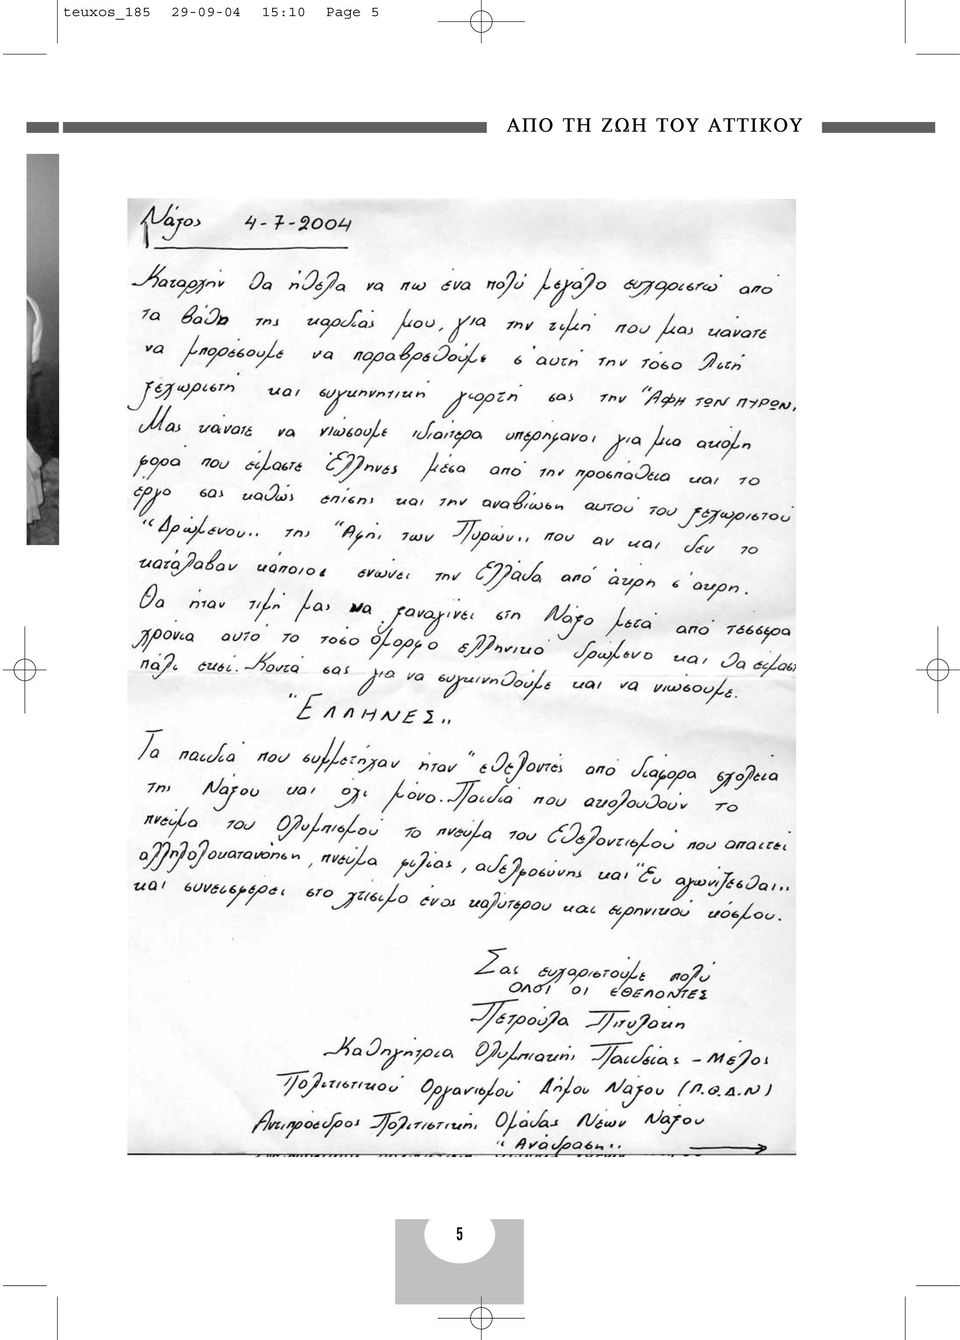 teuxos_185 29-09-04 15:10 Page 5
ΑΠΟ ΤΗ ΖΩΗ ΤΟΥ ΑΤΤΙΚΟΥ
Νάξος 4-7-2004
Καταρχήν θα ήθελα να πω ένα πολύ μεγάλο ευχαριστώ από
τα βάθη της καρδιάς μου, για την τιμή που μας κάνατε
να μπορέσουμε να παραβρεθούμε σ' αυτή την τόσο λιτή
ξεχωριστή και συγκινητική γιορτή σας την "ΑΦΗ ΤΩΝ ΠΥΡΩΝ,
Μας κάνατε να νιώσουμε ιδιαίτερα υπερήφανοι για μια ακόμη
φορά που είμαστε Έλληνες μέσα από την προσπάθεια και το
έργο σας καθώς επίσης και την αναβίωση αυτού του ξεχωριστού
"Δρώμενου,, της "Αφής των Πυρών,, που αν και δεν το
κατάλαβαν κάποιοι ενώνει την Ελλάδα από άκρη σ' άκρη.
Θα ήταν τιμή μας να ξαναγίνει στη Νάξο μετά από τέσσερα
χρόνια αυτό το τόσο όμορφο ελληνικό δρώμενο και θα είμαστ
πάλι εκεί. Κοντά σας για να συγκινηθούμε και να νιώσουμε.
"ΕΛΛΗΝΕΣ,,
Τα παιδιά που συμμετήχαν ήταν "εθελοντές από διάφορα σχολεία
της Νάξου και όχι μόνο. Παιδιά που ακολουθούν το
πνεύμα του Ολυμπισμού το πνεύμα του Εθελοντισμού που απαιτεί
αλληλοκατανόηση, πνεύμα φιλίας, αδελφοσύνης και "Ευ αγωνίζεσθαι,,
και συνεισφέρει στο χτίσιμο ενός καλύτερου και ειρηνικού κόσμου.
Σας ευχαριστούμε πολύ
ΟΛΟΙ ΟΙ ΕΘΕΛΟΝΤΕΣ
Πετρούλα Πιτυλάκη
Καθηγήτρια Ολυμπιακής Παιδείας - Μέλος
Πολιτιστικού Οργανισμού Δήμου Νάξου (Π.Ο.Δ.Ν)
Αντιπρόεδρος Πολιτιστικής Ομάδας Νέων Νάξου
"Ανάδραση,,
5